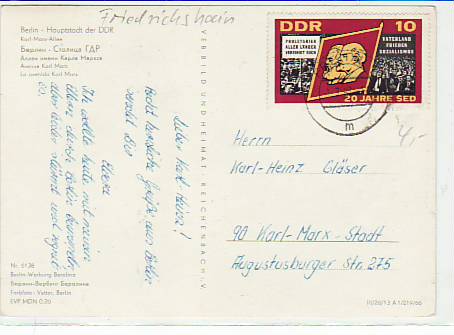 Friedrichshain
Berlin - Hauptstadt der DDR
Karl-Marx-Allee
Берлин - Столица ГДР
Аллея имени Карла Маркса
Avenue Karl Marx
La avenida Karl Marx
Lieber Karl-Heinz!
Recht herzliche Grüße aus Berlin
sendet Dir
Ich wollte heute mit meinen
Eltern durch Berlin bummeln,
aber leider stürmt und regnet
es.
Nr. 6136
Berlin-Werbung Berolina
Берлин-Вербунг Беролина
Farbfoto: Vetter, Berlin
EVP MDN 0,20
VERB BILD UND HEIMAT REICHENBACH I. V.
DDR 10
PROLETARIER
ALLER LÄNDER
VEREINIGT EUCH
VATERLAND
FRIEDEN
SOZIALISMUS
20 JAHRE SED
m
Herrn
Karl-Heinz Gläser
90 Karl-Marx-Stadt
Augustusburger Str. 275
III/26/13 A 1/219/66